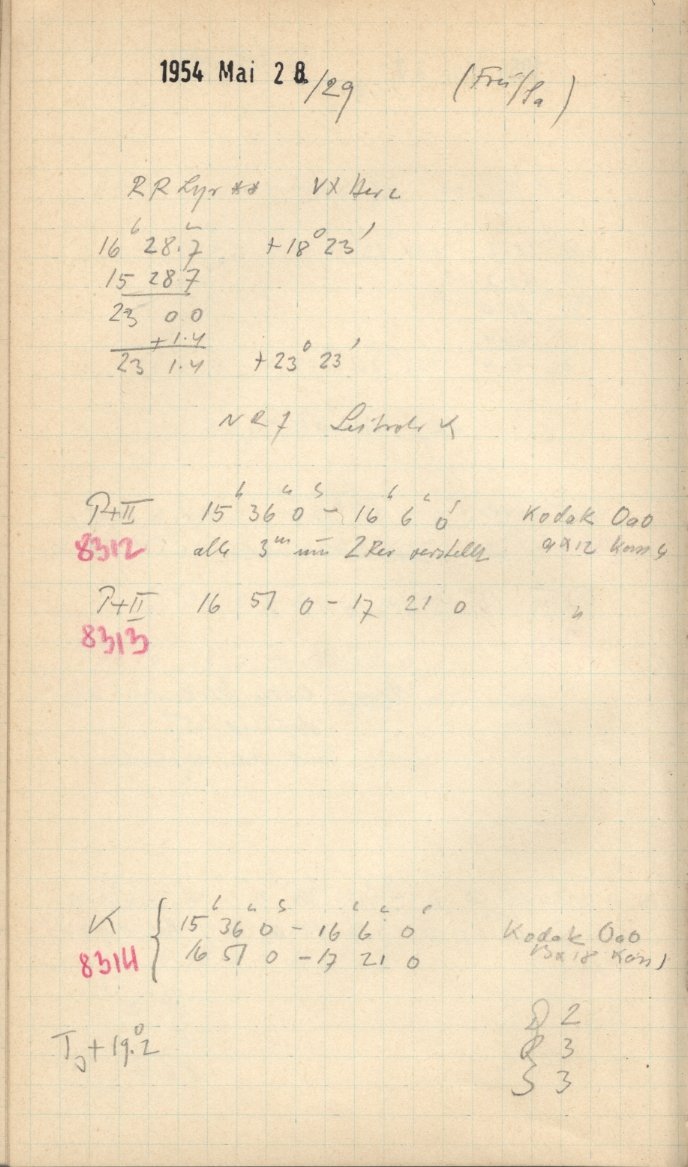 1954 Mai 28./29 (Frei/Sa)
RR Lyr ** VX Herc
16h 28.7m +18° 23'
15 28 7
23 0 0
+1.4
23 1.4 +23° 23'
N R 7 K
P+II 15h 36m 0s - 16h 6m 0s Kodak OaO
8312 alle 3m um 2 Rev verstellt 9x12 Kass 4
P+II 16 51 0 - 17 21 0 "
8313
K { 15h 36m 0s - 16h 6m 0s Kodak OaO
8314 16 51 0 - 17 21 0 13x18 Kass 1
D 2
T0 + 19°.2 R 3
S 3